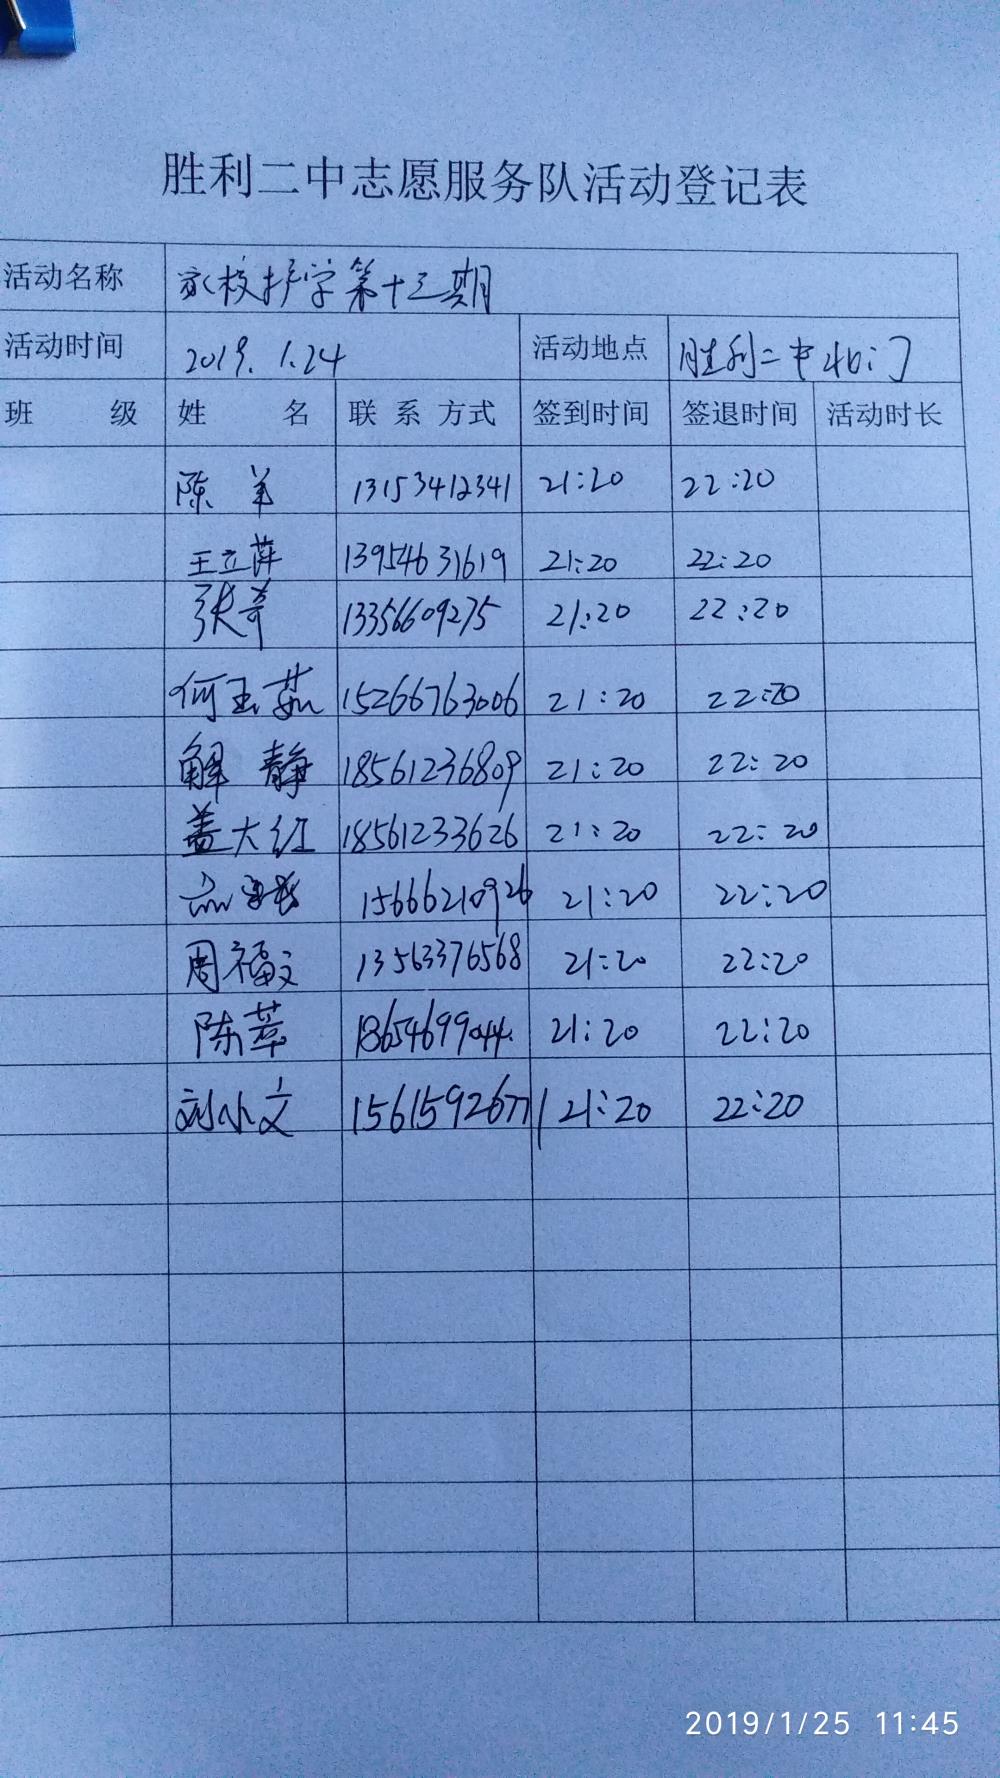 胜利二中志愿服务队活动登记表
活动名称 家校护学第十三期
活动时间 2019.1.24 活动地点 胜利二中北门
班 级 姓 名 联系方式 签到时间 签退时间 活动时长
陈 羊 13153412341 21:20 22:20
王立萍 13954631619 21:20 22:20
张奇 13356609275 21:20 22:20
何玉茹 15266763006 21:20 22:20
解 静 18561236809 21:20 22:20
盖大红 18561233626 21:20 22:20
15666210926 21:20 22:20
周福文 13563376568 21:20 22:20
陈萃 18654699044. 21:20 22:20
刘小文 15615926771 21:20 22:20
2019/1/25 11:45